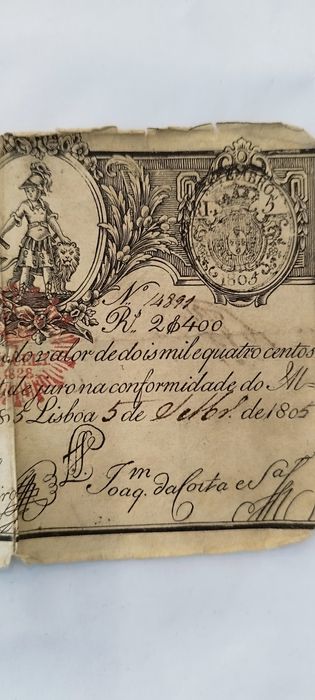 1805
Nº 14891
Rˢ 2$400
valor de dois mil e quatro centos
de juro na conformidade do
Lisboa 5 de Setbr.º de 1805
Joaqm. da Costa e Sá